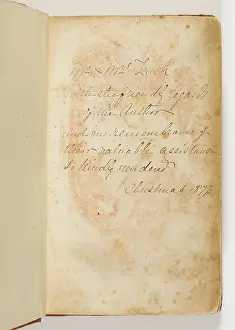 Mr & Mrs
with the friendly regards
of the Author
and in remembrance of
their valuable assistance
so kindly rendered
Christmas 1877